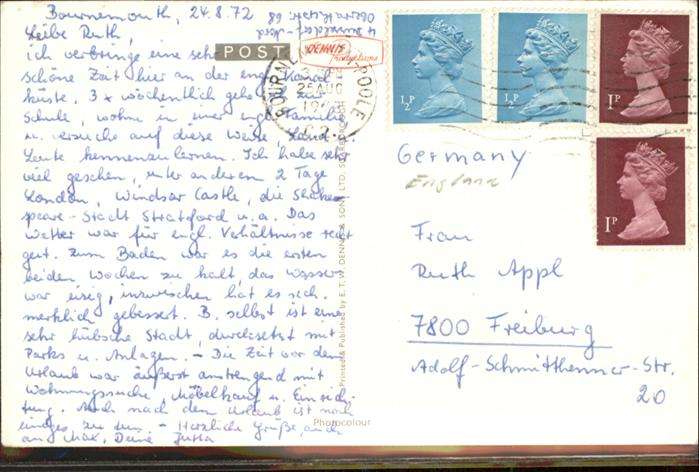 Bournemouth, 24.8.72
Liebe Ruth,
ich verbringe eine sehr
schöne Zeit hier an der engl. Kanal
küste. 3 x wöchentlich gehe ich zur
Schule, wohne in einer engl. Familie
u. versuche auf diese Weise, Land u.
Leute kennenzulernen. Ich habe sehr
viel gesehen, unter anderem 2 Tage
London, Windsor Castle, die Shakes-
peare-Stadt Stratford u.a. Das
Wetter war für engl. Verhältnisse recht
gut. Zum Baden war es die ersten
beiden Wochen zu kalt, das Wasser
war eisig, inzwischen hat es sich
merklich gebessert. B. selbst ist eine
sehr hübsche Stadt, durchsetzt mit
Parks u. Anlagen. - Die Zeit vor dem
Urlaub war äußerst anstrengend mit
Wohnungssuche, Möbelkauf u. Einrich-
tung. Auch nach dem Urlaub ist noch
einiges zu tun. - Herzliche Grüße, auch
an Max, Deine Jutta
4 Düsseldorf-Nord
68
POST
DENNIS
Productions
BOURNEMOUTH POOLE
25 AUG
1972
Printed & Published by E. T. W. DENNIS & SONS LTD. SCARBOROUGH
Photocolour
½P
½P
1P
1P
Germany
England
Frau
Ruth Appl
7800 Freiburg
Adolf-Schmitthenner-Str.
20